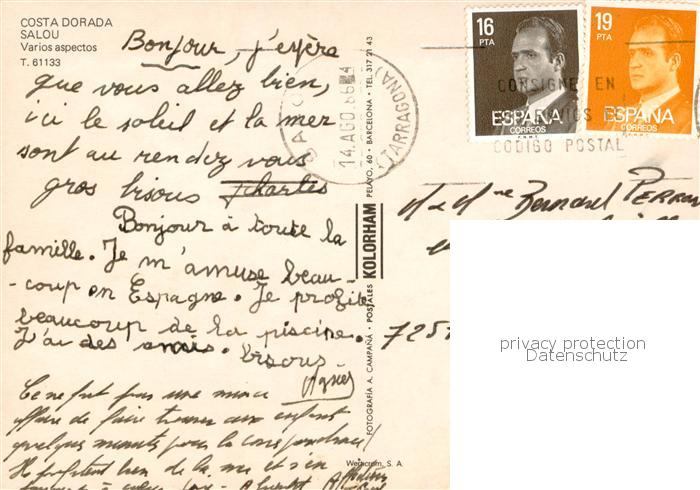 COSTA DORADA
SALOU
Varios aspectos
T. 61133
Bonjour, j'espère
que vous allez bien,
ici le soleil et la mer
sont au rendez vous
gros bisous
Bonjour à toute la
famille. Je m'amuse beau-
coup en Espagne. Je profite
beaucoup de la piscine.
J'ai des amis. bisous
Agnès
Ce ne fut pas une mince
affaire de faire trouver aux enfants
quelques minutes pour la correspondance!
Ils profitent bien de la mer et s'en
A bientôt
FOTOGRAFIA A. CAMPAÑÁ · POSTALES KOLORHAM PELAYO, 60 · BARCELONA · TEL. 317 21 43
Wercrom, S. A.
14.AGO.86
(TARRAGONA)
16
PTA
ESPAÑA
CORREOS
F.N.M.T.
19
PTA
ESPAÑA
CORREOS
F.N.M.T.
CONSIGNE EN
CODIGO POSTAL
M et Mme Bernard
privacy protection
Datenschutz